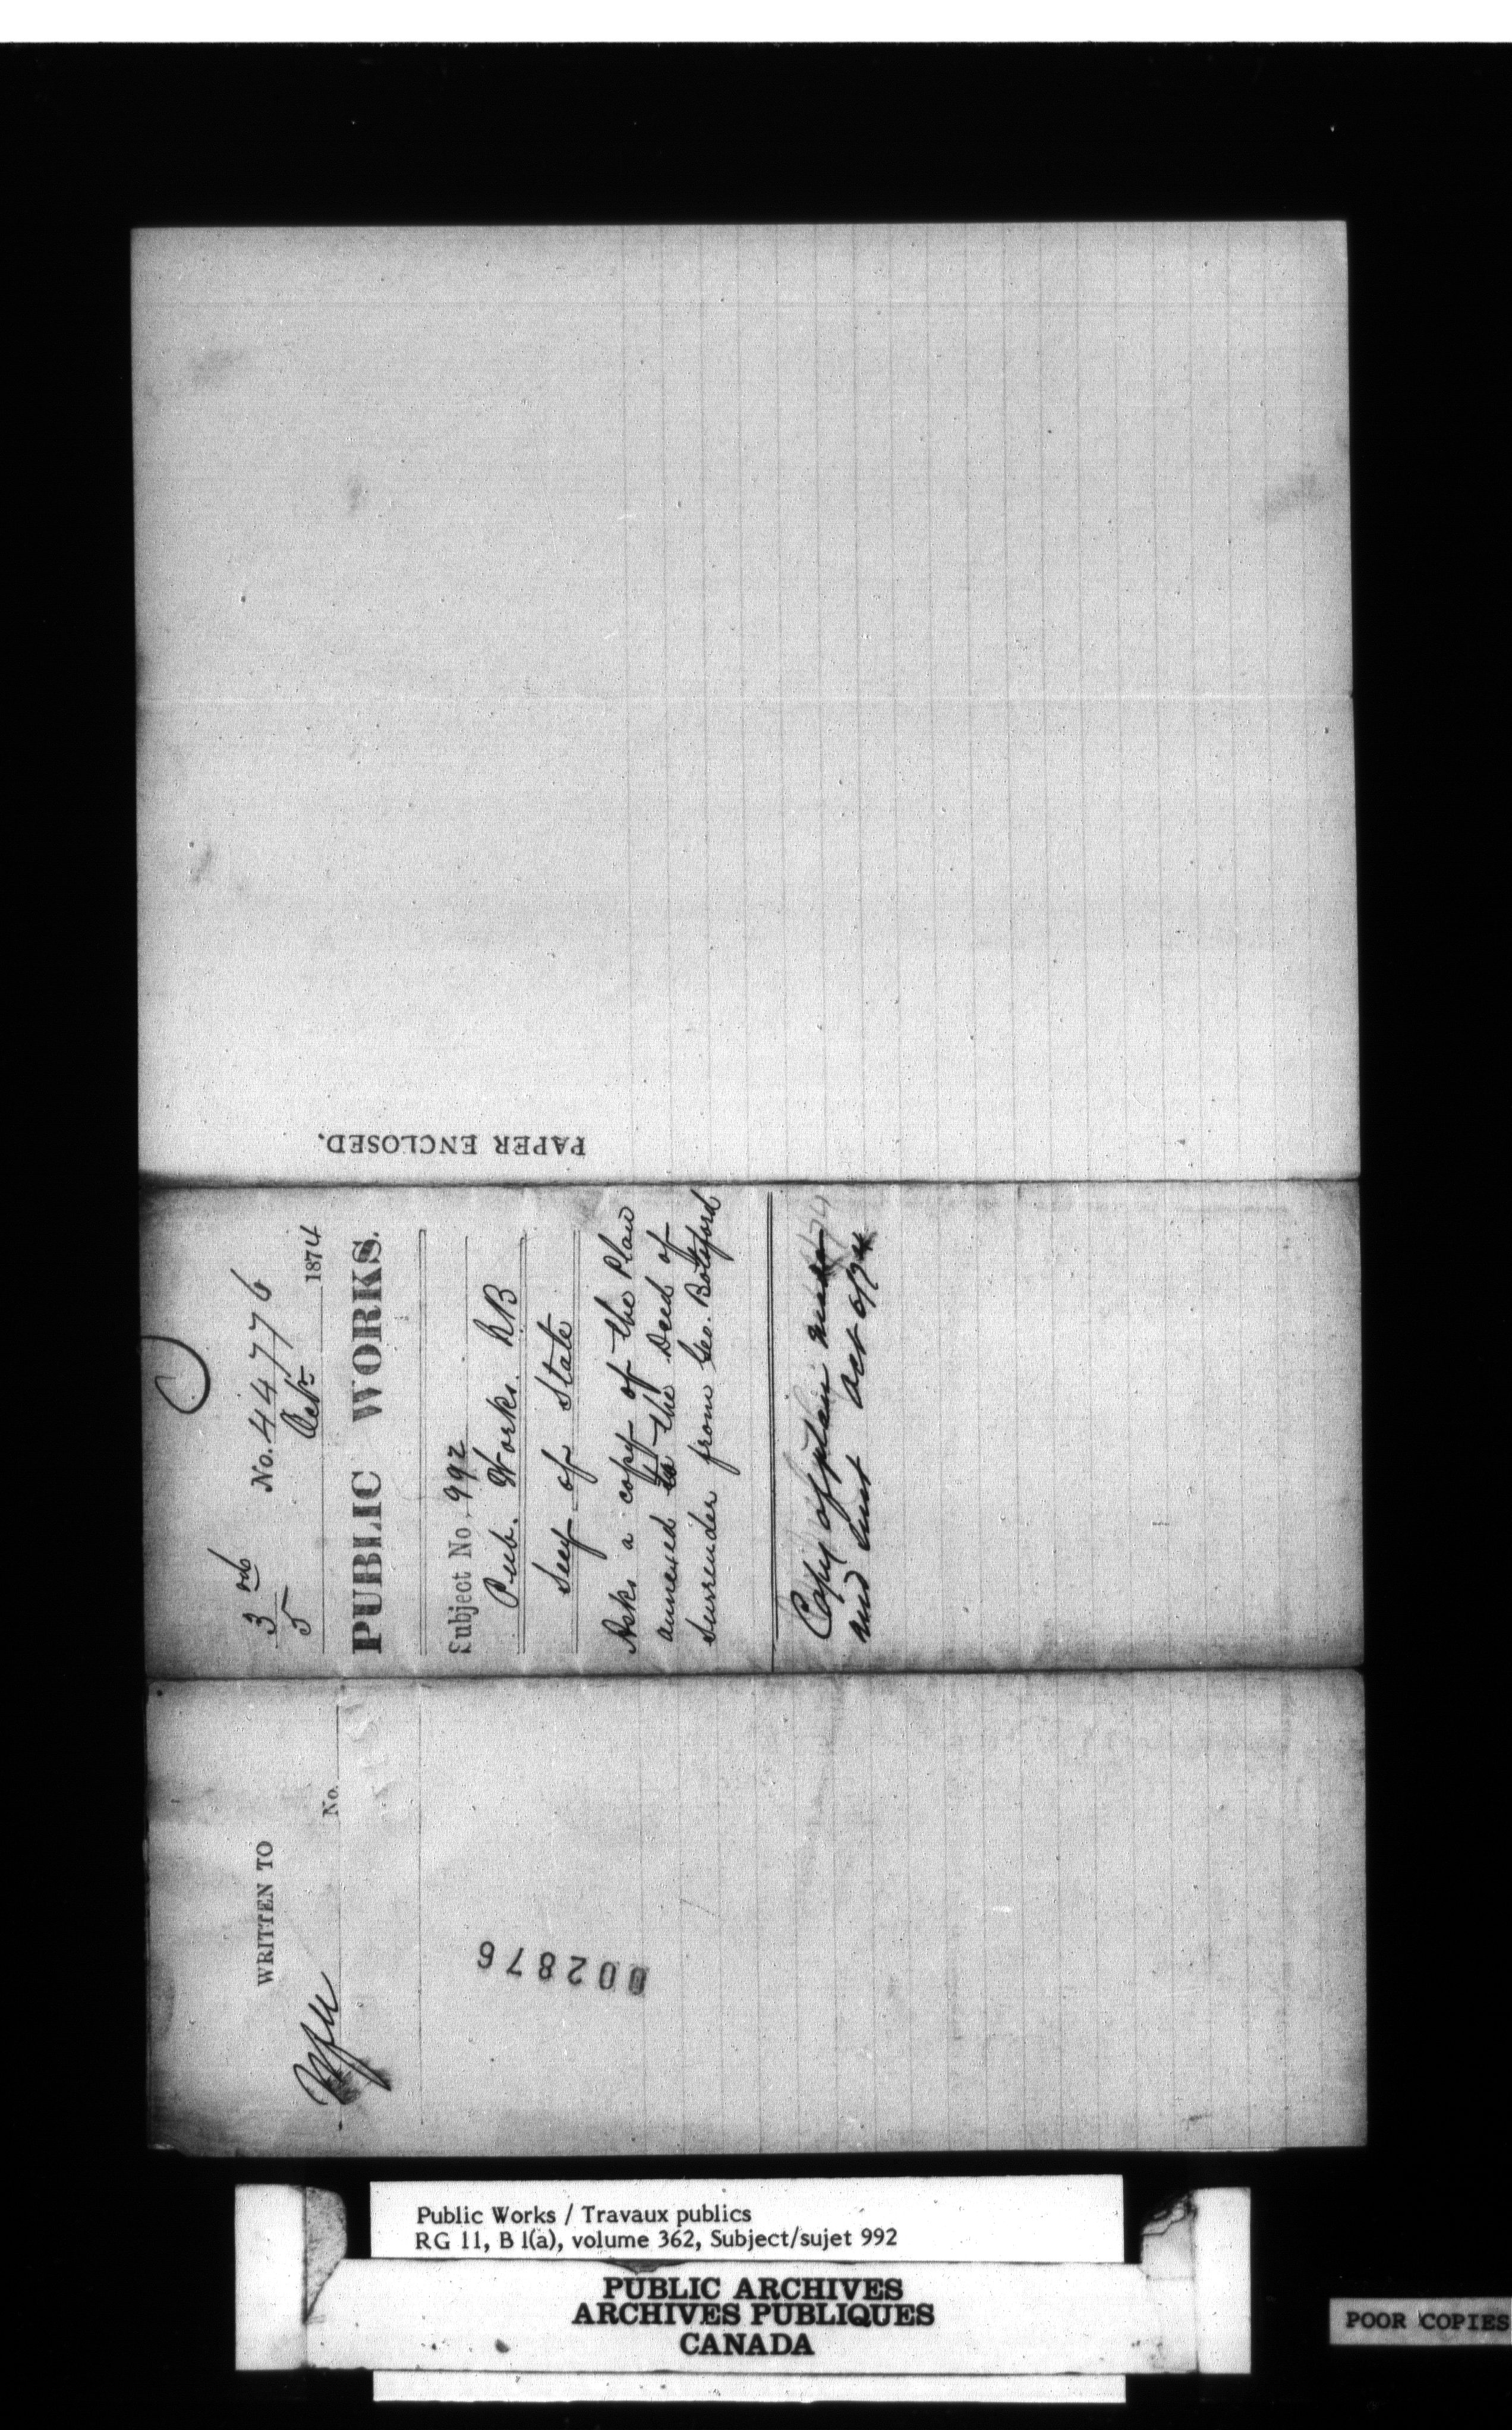 PAPER ENCLOSED.
3rd
5
No. 44776
Octr 1874
PUBLIC WORKS.
Subject No. 992
Pub. Works. RB
Secy of State
Asks a copy of the Plan
annexed to the Deed of
Surrender from Geo. Botsford
Copy of plan made
and sent Oct 6/74
WRITTEN TO
No.
002876
Public Works / Travaux publics
RG 11, B 1(a), volume 362, Subject/sujet 992
PUBLIC ARCHIVES
ARCHIVES PUBLIQUES
CANADA
POOR COPIES